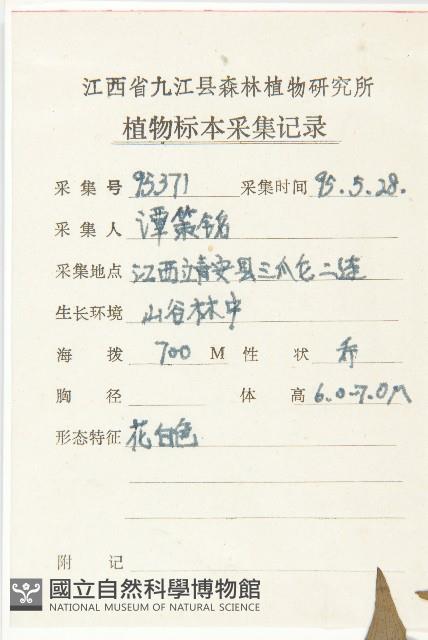 江西省九江县森林植物研究所
植物标本采集记录
采集号 95371 采集时间 95.5.28.
采集人 谭策铭
采集地点 江西靖安县三爪仑二连
生长环境 山谷林中
海拨 700 M 性状 乔
胸径 体高 6.0-7.0M
形态特征 花白色
附记
國立自然科學博物館
NATIONAL MUSEUM OF NATURAL SCIENCE